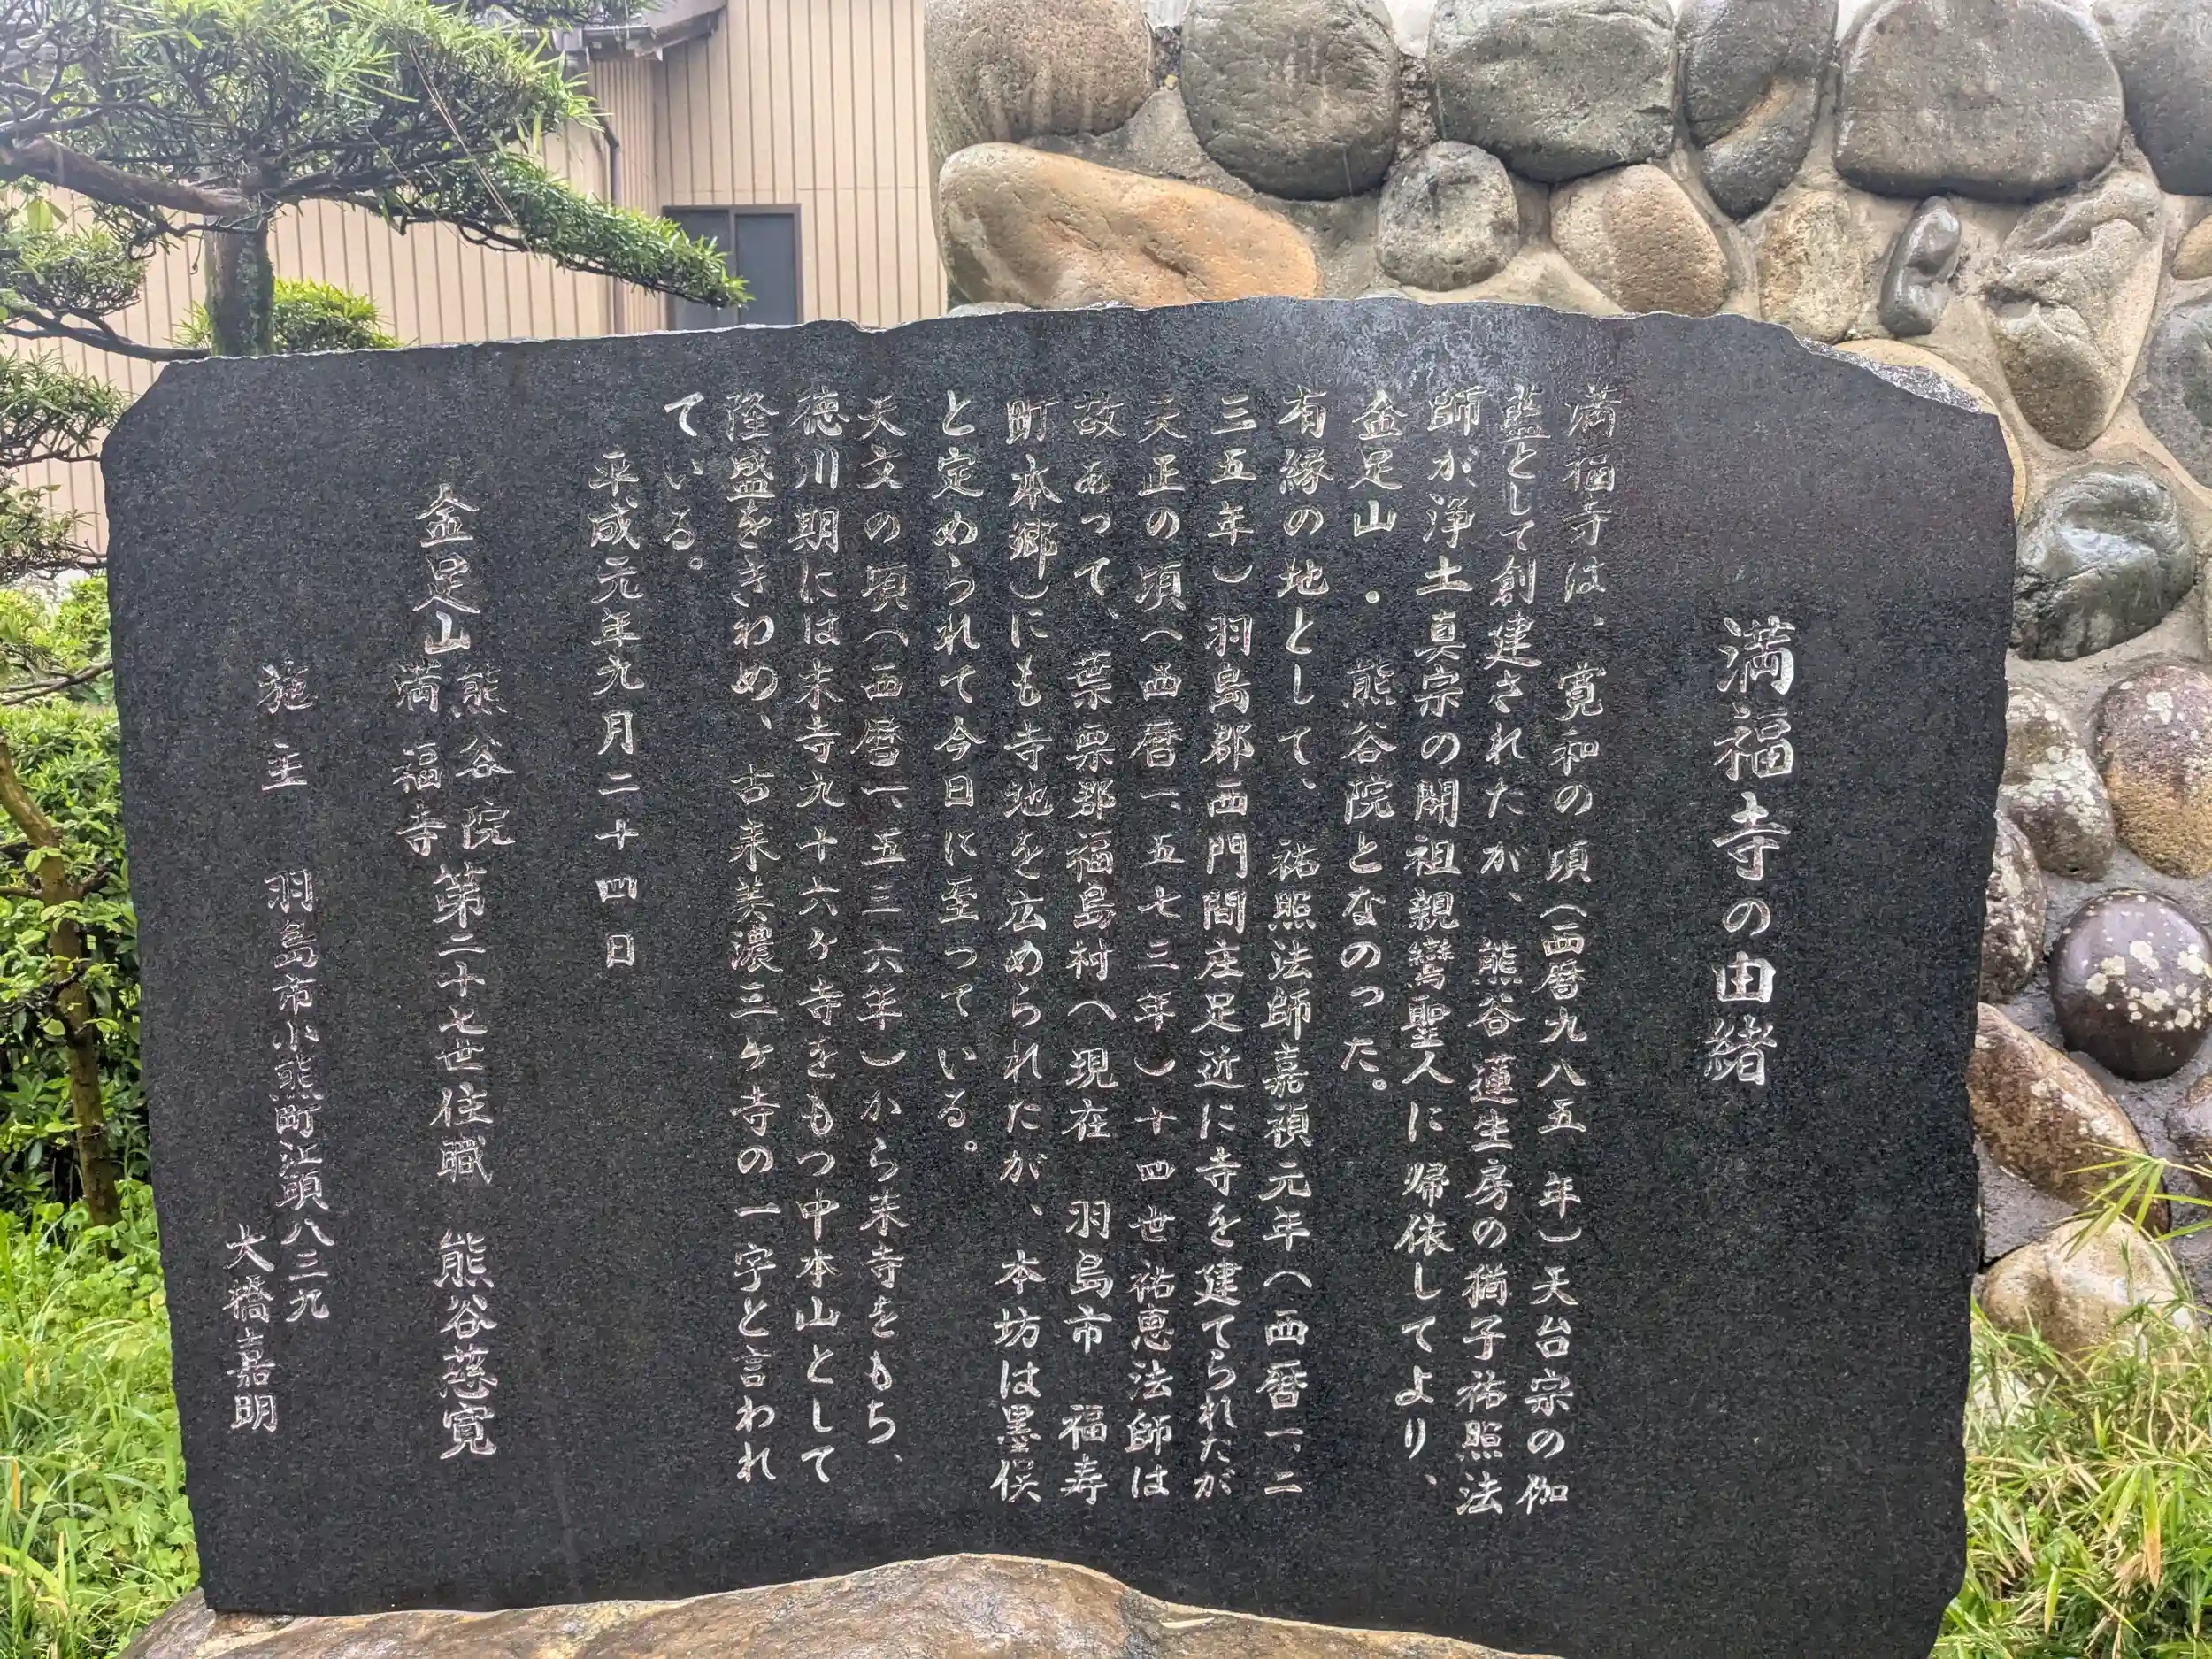 満福寺の由緒
満福寺は、寛和の頃(西暦九八五年)天台宗の伽
藍として創建されたが、熊谷蓮生房の猶子祐照法
師が浄土真宗の開祖親鸞聖人に帰依してより、
金足山・熊谷院となのった。
有縁の地として、祐照法師嘉禎元年(西暦一、二
三五年)羽島郡西門間庄足近に寺を建てられたが
天正の頃(西暦一、五七三年)十四世祐恵法師は
故あって、葉栗郡福島村(現在 羽島市 福寿
町本郷)にも寺地を広められたが、本坊は墨俣
と定められて今日に至っている。
天文の頃(西暦一、五三六年)から末寺をもち、
徳川期には末寺九十六ヶ寺をもつ中本山として
隆盛をきわめ、古来美濃三ヶ寺の一字と言われ
ている。
平成元年九月二十四日
金足山 熊谷院 満福寺 第二十七世住職 熊谷慈寛
施主 羽島市小熊町江頭八三九
大橋嘉明